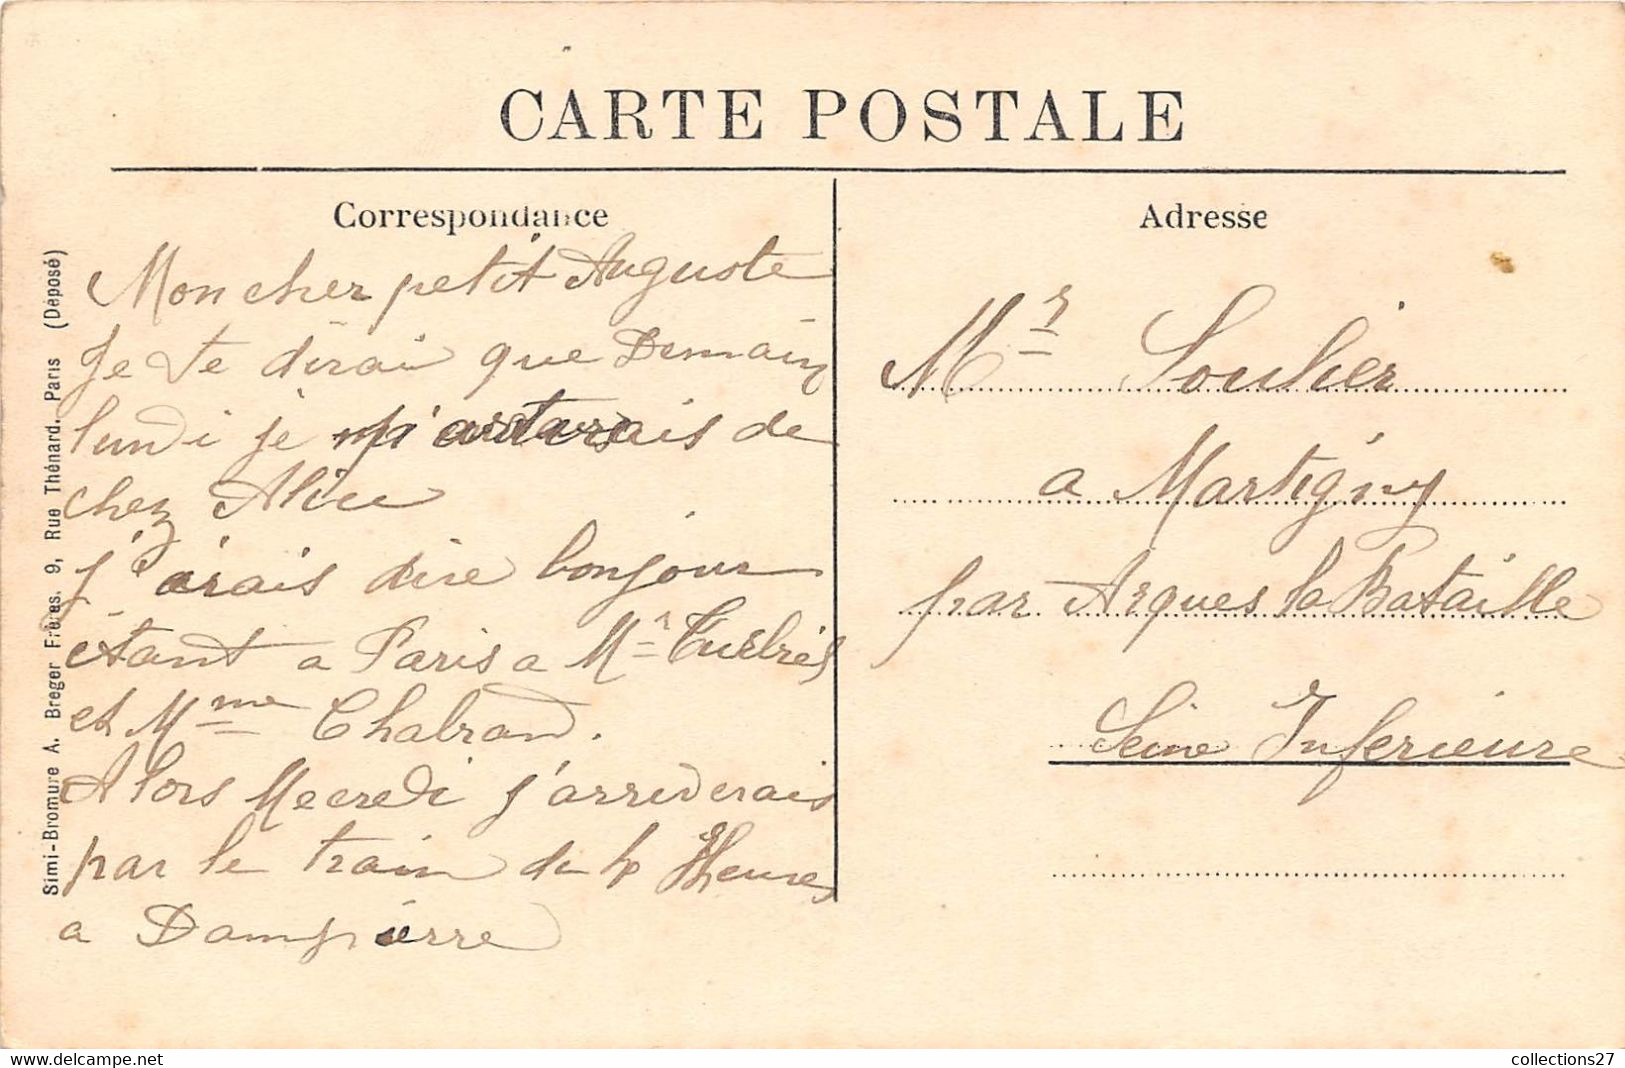 CARTE POSTALE
Correspondance
Mon cher petit Auguste
Je te dirai que Demain
lundi je m'arreterais de
chez Alice
j'irais dire bonjour
étant a Paris a Mr
et Mme Chabrand.
Alors Mecredi j'arriverais
par le train de 4 Heures
a Dampierre
Adresse
Mr Soulier
a Martigny
par Arques la Bataille
Seine Inferieure
Simi-Bromure A. Breger Frères. 9, Rue Thénard. Paris (Déposé)
collections27